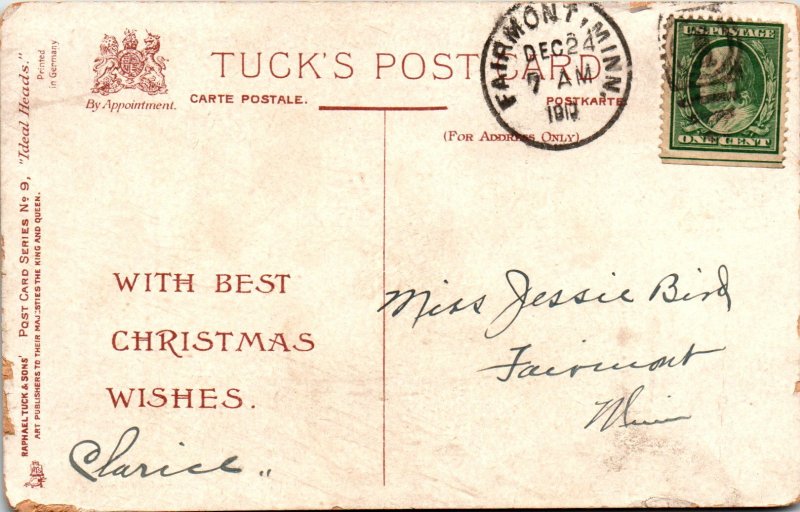 TUCK'S POST CARD
By Appointment.
CARTE POSTALE.
POSTKARTE
(FOR ADDRESS ONLY)
FAIRMONT, MINN.
DEC 24
7 AM
U.S. POSTAGE
ONE CENT
Printed
in Germany
RAPHAEL TUCK & SONS' POST CARD SERIES No 9, "Ideal Heads."
ART PUBLISHERS TO THEIR MAJESTIES THE KING AND QUEEN.
WITH BEST
CHRISTMAS
WISHES.
Clarice
Miss Jessie Bird
Fairmont
Minn